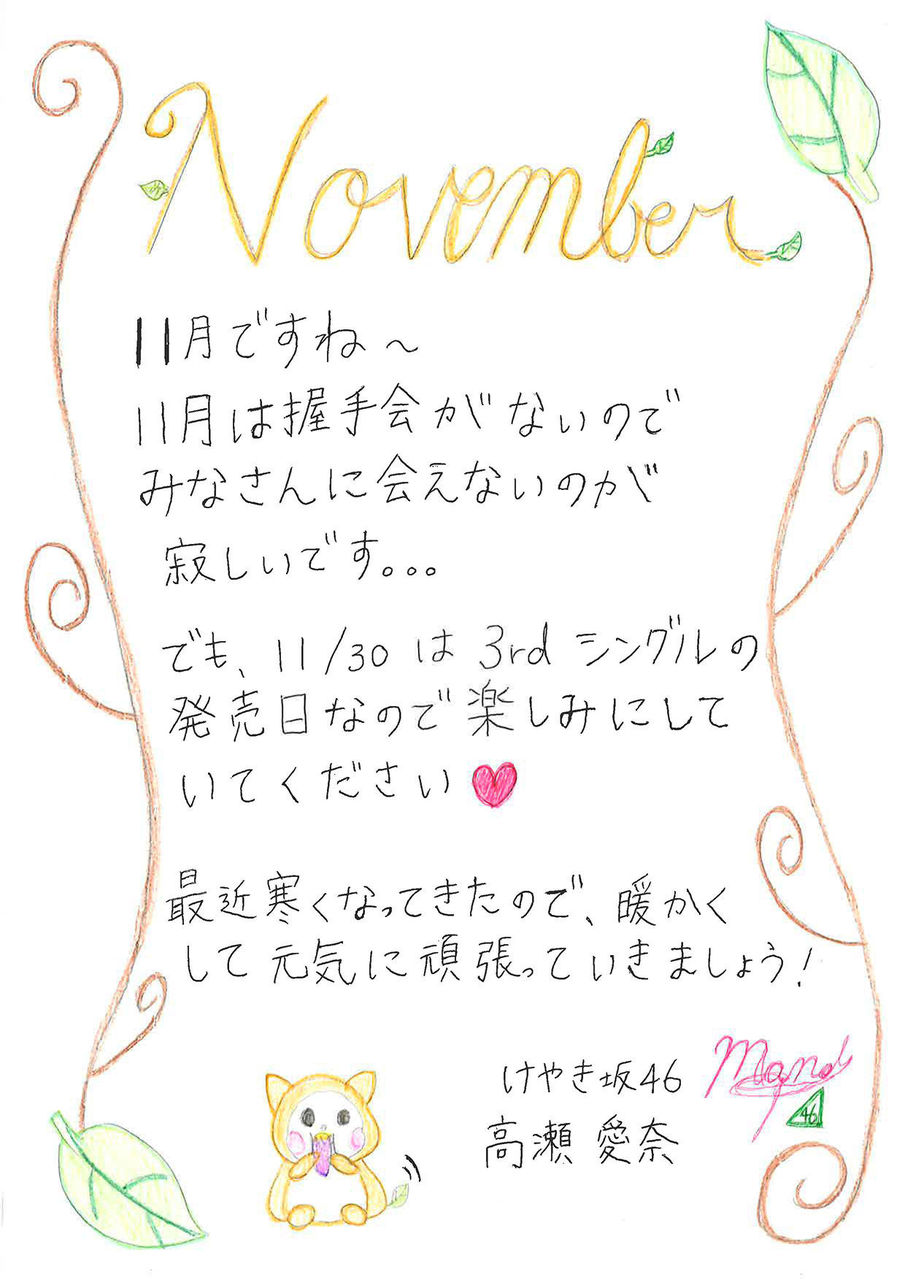 November
11月ですね～
11月は握手会がないので
みなさんに会えないのが
寂しいです。。。
でも、11/30は3rdシングルの
発売日なので楽しみにして
いてください
最近寒くなってきたので、暖かく
して元気に頑張っていきましょう！
けやき坂46
高瀬愛奈
Mana
46